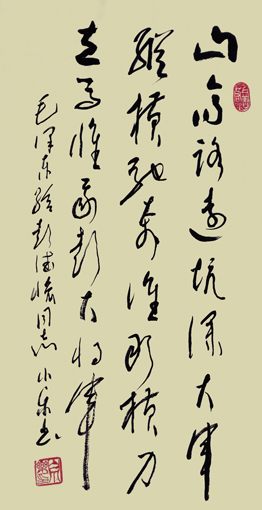 山高路远坑深大军
纵横驰奔谁敢横刀
立马惟我彭大将军
毛泽东给彭德怀同志 小东书